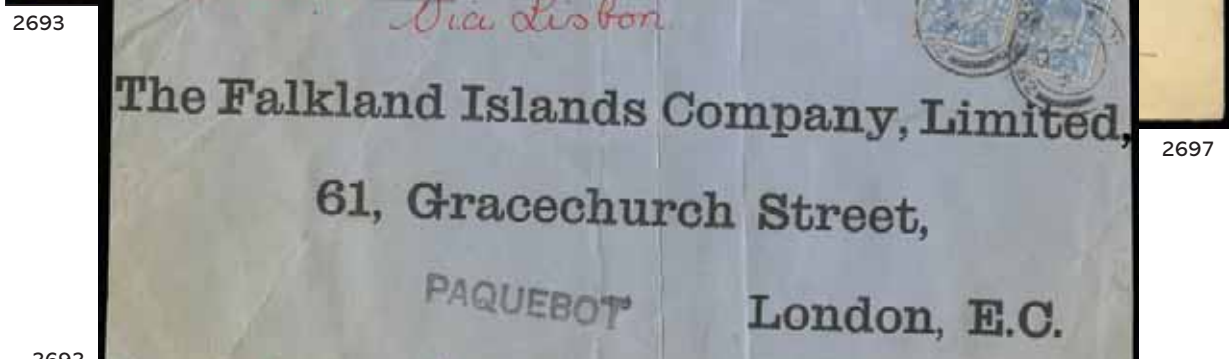 2693
Via Lisbon
The Falkland Islands Company, Limited,
2697
61, Gracechurch Street,
PAQUEBOT
London, E.C.